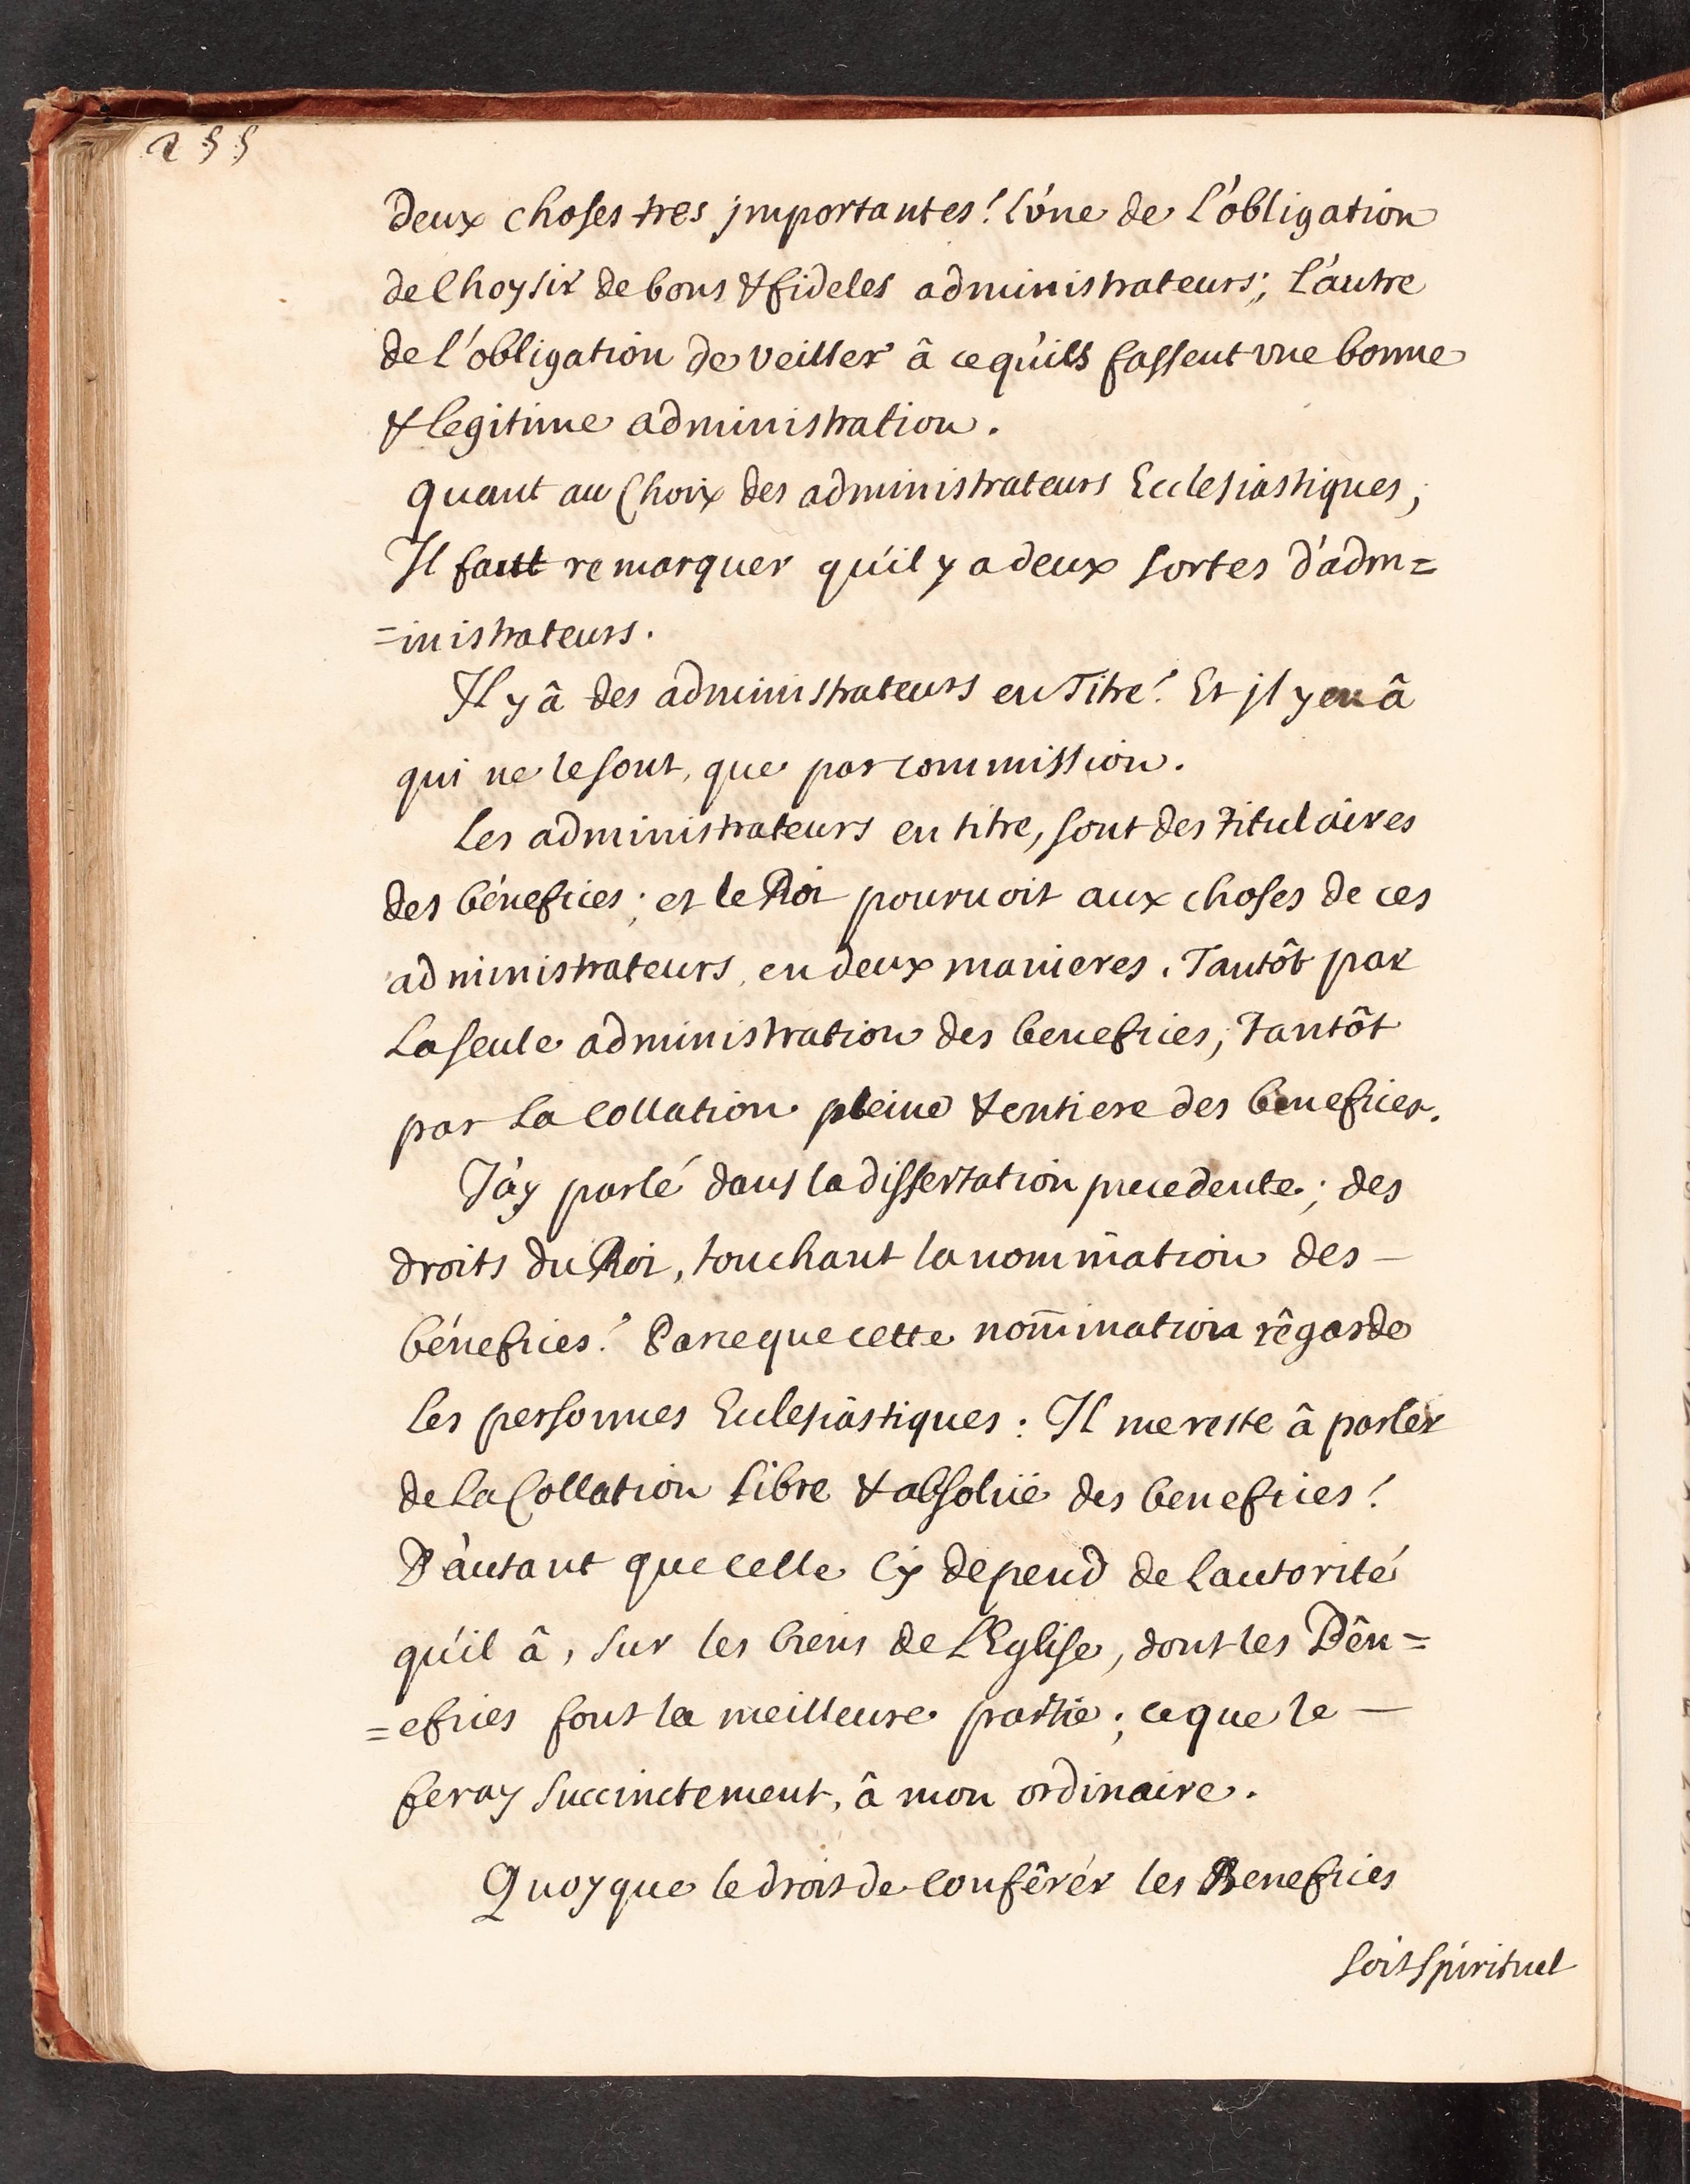 255
Deux choses tres jmportantes! L'úne de L'óbligation
de Choysir de bons & fideles administrateurs; L'áutre
de L'obligation de veiller â ce qu'ils fassent vne bonne
& legitime administration.
quant au Choix des administrateurs Ecclesiastiques,
Il faut remarquer qu'il y a deux sortes d'adm=
=inistrateurs.
Il y â des administrateurs en Titre! Et jl y en â
qui ne le sont, que par commission.
Les administrateurs en titre, sont des Titulaires
des bénefices; et le Roi pouruoit aux choses de ces
administrateurs, en deux manieres. Tantôt par
La seule administration des benefices; Tantôt
par La Collation pleine & entiere des benefices.
J'ay parlé dans la dissertation precedente; des
droits du Roi, touchant la nomination des —
bénefices! Parce que cette nom̄ination rêgarde
les personnes Eclesiastiques: Il me reste â parler
de La Collation Libre & absoluë des benefices!
D'autant que celle Cy depend de L'autorité
qu'il â, sur les biens de L'Eglise, dont les Bên=
=efices font la meilleure partie; ce que Je —
feray Succinctement, â mon ordinaire.
Quoyque le droit de Confêrér les Benefices
Soit Spirituel